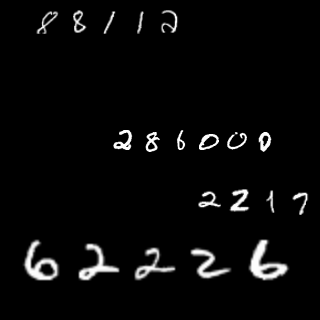 88112
286000
2217
62226